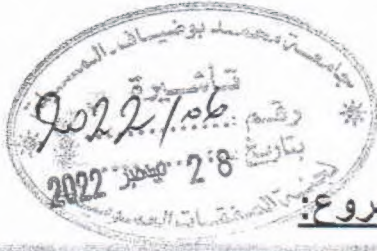 جامعة محمد بوضياف المس
تأشيرة
رقم : 2022/06
بتاريخ 28 ديسمبر 2022
لجنة الصفقات
روع: